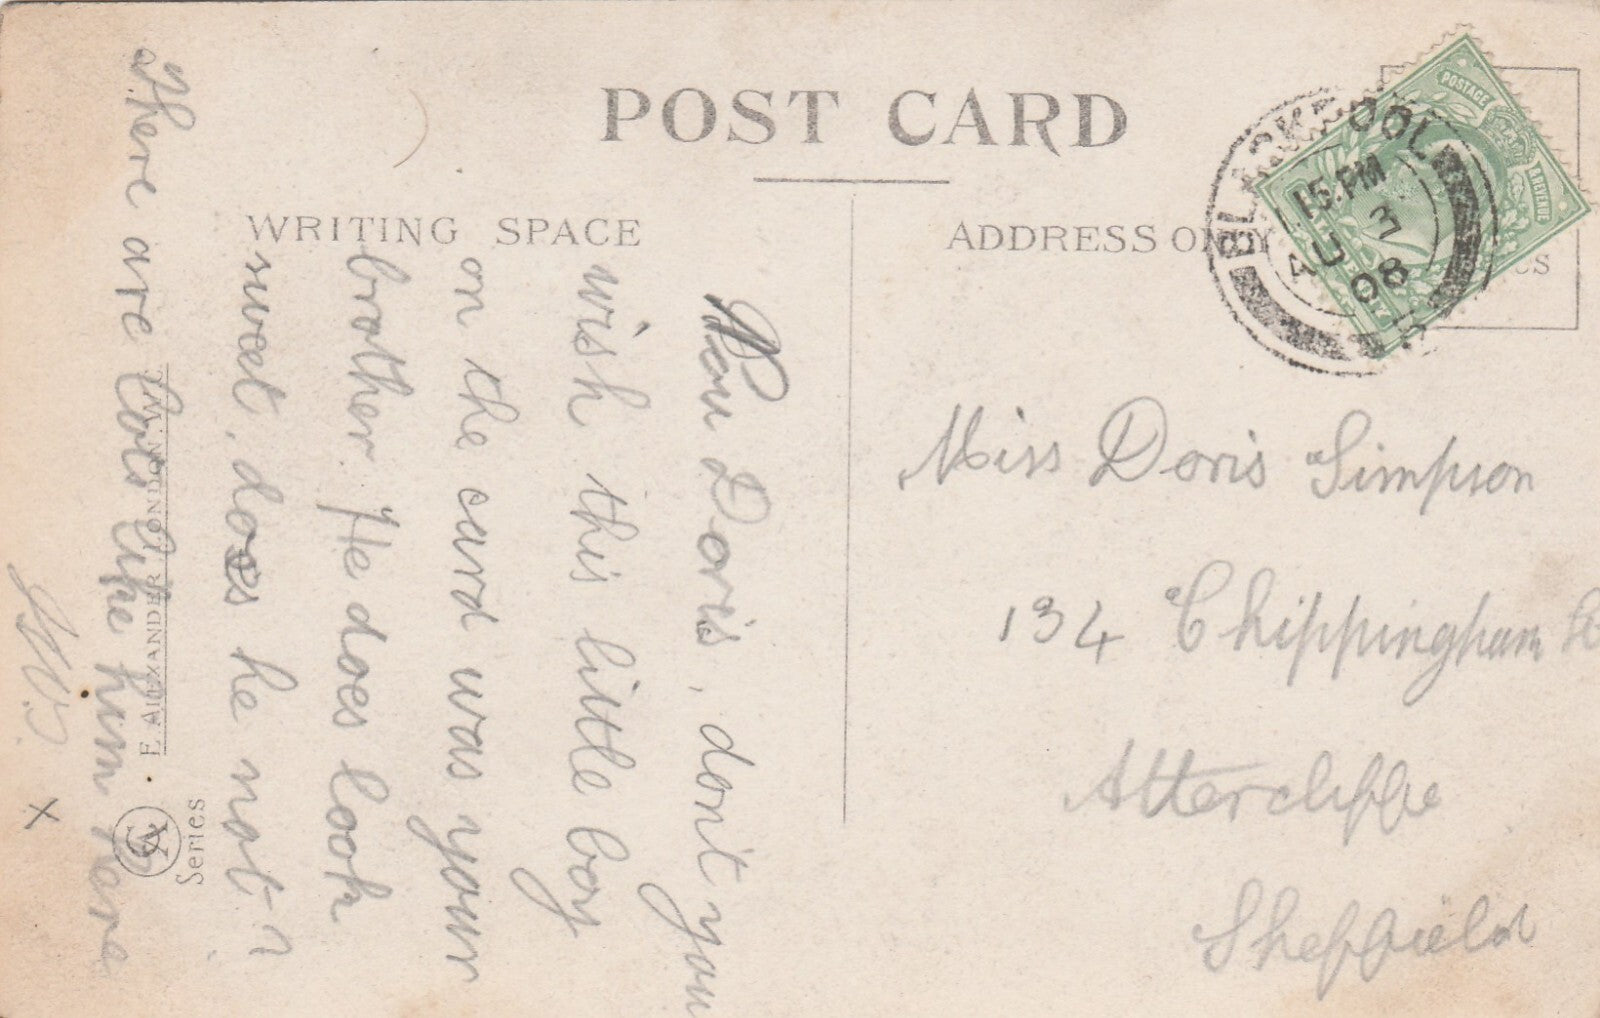 POST CARD
WRITING SPACE
ADDRESS ONLY
BLACKPOOL
15.PM
AU 3
08
POSTAGE
REVENUE
Doris, don't you
wish this little boy
on the card was your
brother. He does look
sweet, does he not?
There are lots like him here
x
Miss Doris Simpson
134 Chippingham
Attercliffe
Sheffield
E. ALEXANDER LONDON. W.C.
Series